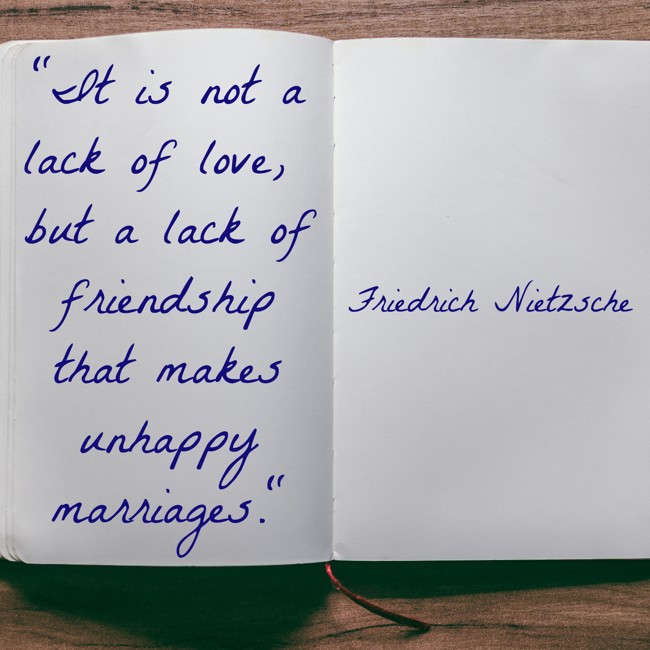 "It is not a
lack of love,
but a lack of
friendship
that makes
unhappy
marriages."
Friedrich Nietzsche